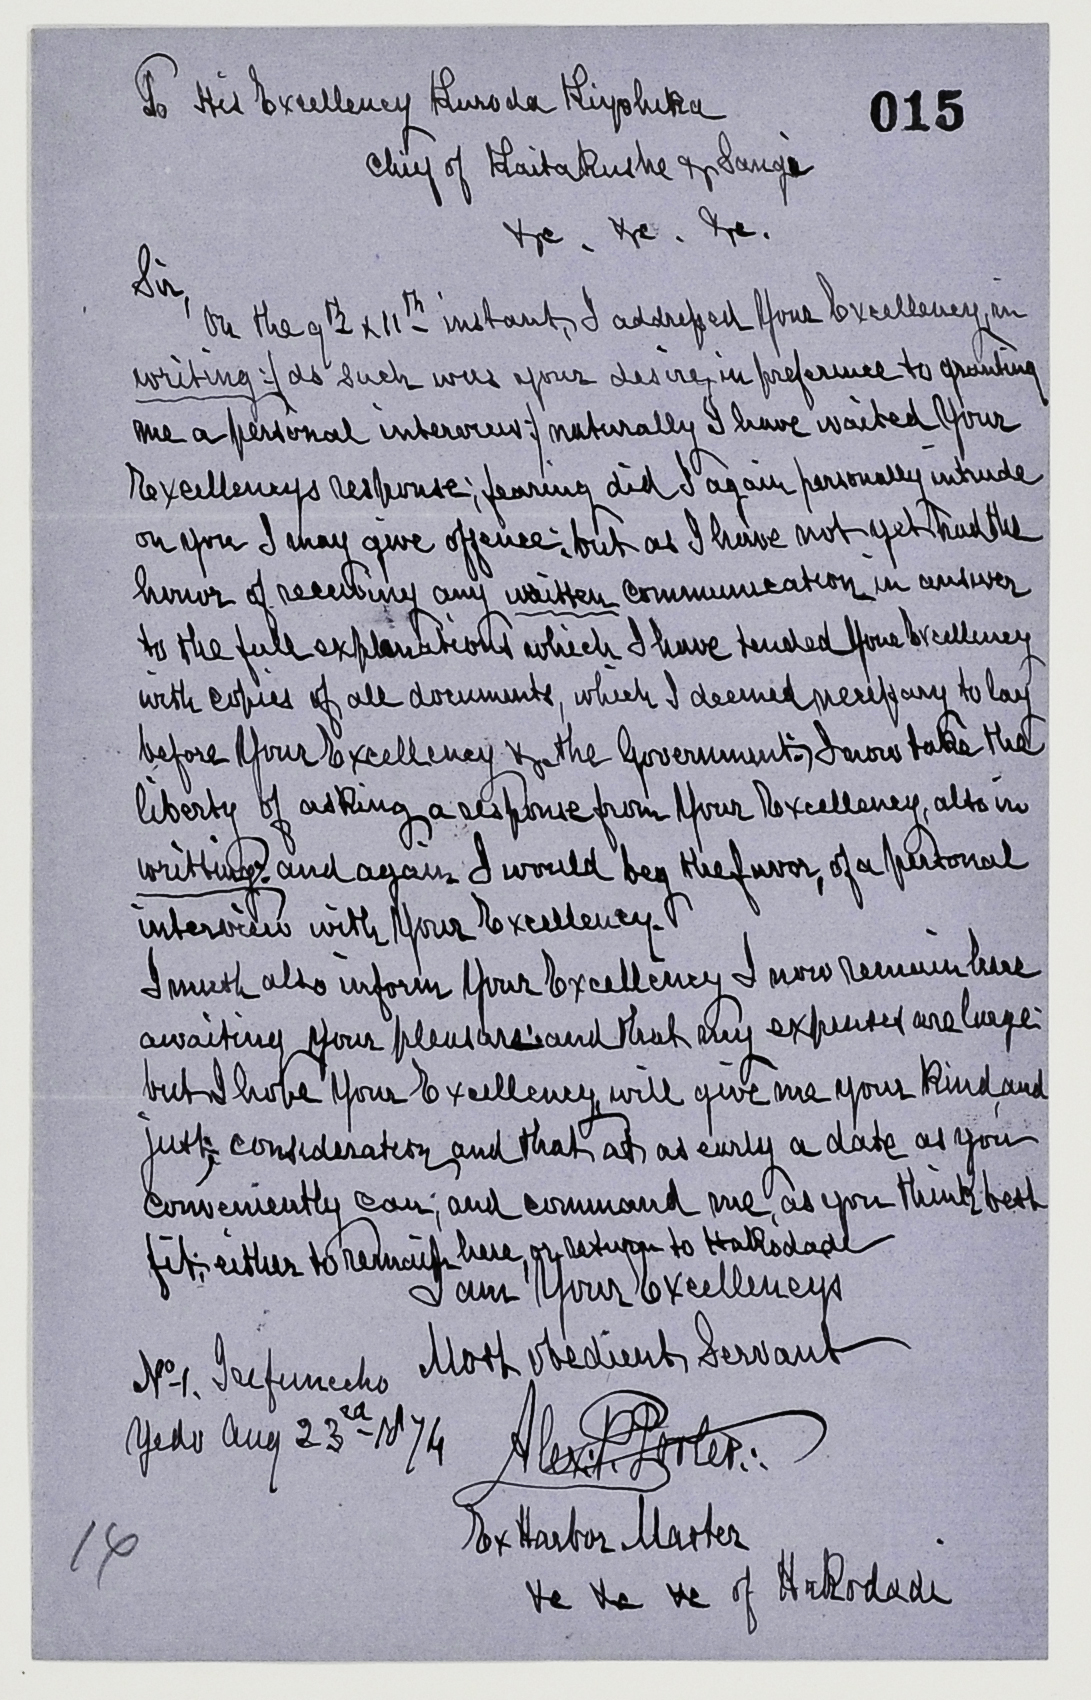 To His Excellency Kuroda Kiyohika
015
Chief of Kaitakushe & Sangi
&c. &c. &c.
Sir,
On the 9th & 11th instant, I addressed Your Excellency, in
writing:/ as such was your desire, in preference to granting
me a personal interview:/ naturally I have waited Your
Excellencys response; fearing did I again personally intrude
on you I may give offence; but as I have not yet had the
honor of receiving any written communication in answer
to the full explanations which I have tended Your Excellency
with copies of all documents, which I deemed necessary to lay
before Your Excellency & the Government; I now take the
liberty of asking a response from Your Excellency, also in
writting; and again I would beg the favor, of a personal
interview with Your Excellency.
I must also inform Your Excellency I now remain here
awaiting your pleasure: and that my expenses are large:
but I hope Your Excellency, will give me your kind, and
just; consideration, and that at as early a date as you
conveniently can; and command me, as you think best
fit; either to remain here, or return to Hakodade
I am Your Excellencys
Most obedient Servant
No 1.
Yedo Aug 23rd 1874
Alex. P. Porter.
Ex Harbor Master
&c &c &c of Hakodadi
14